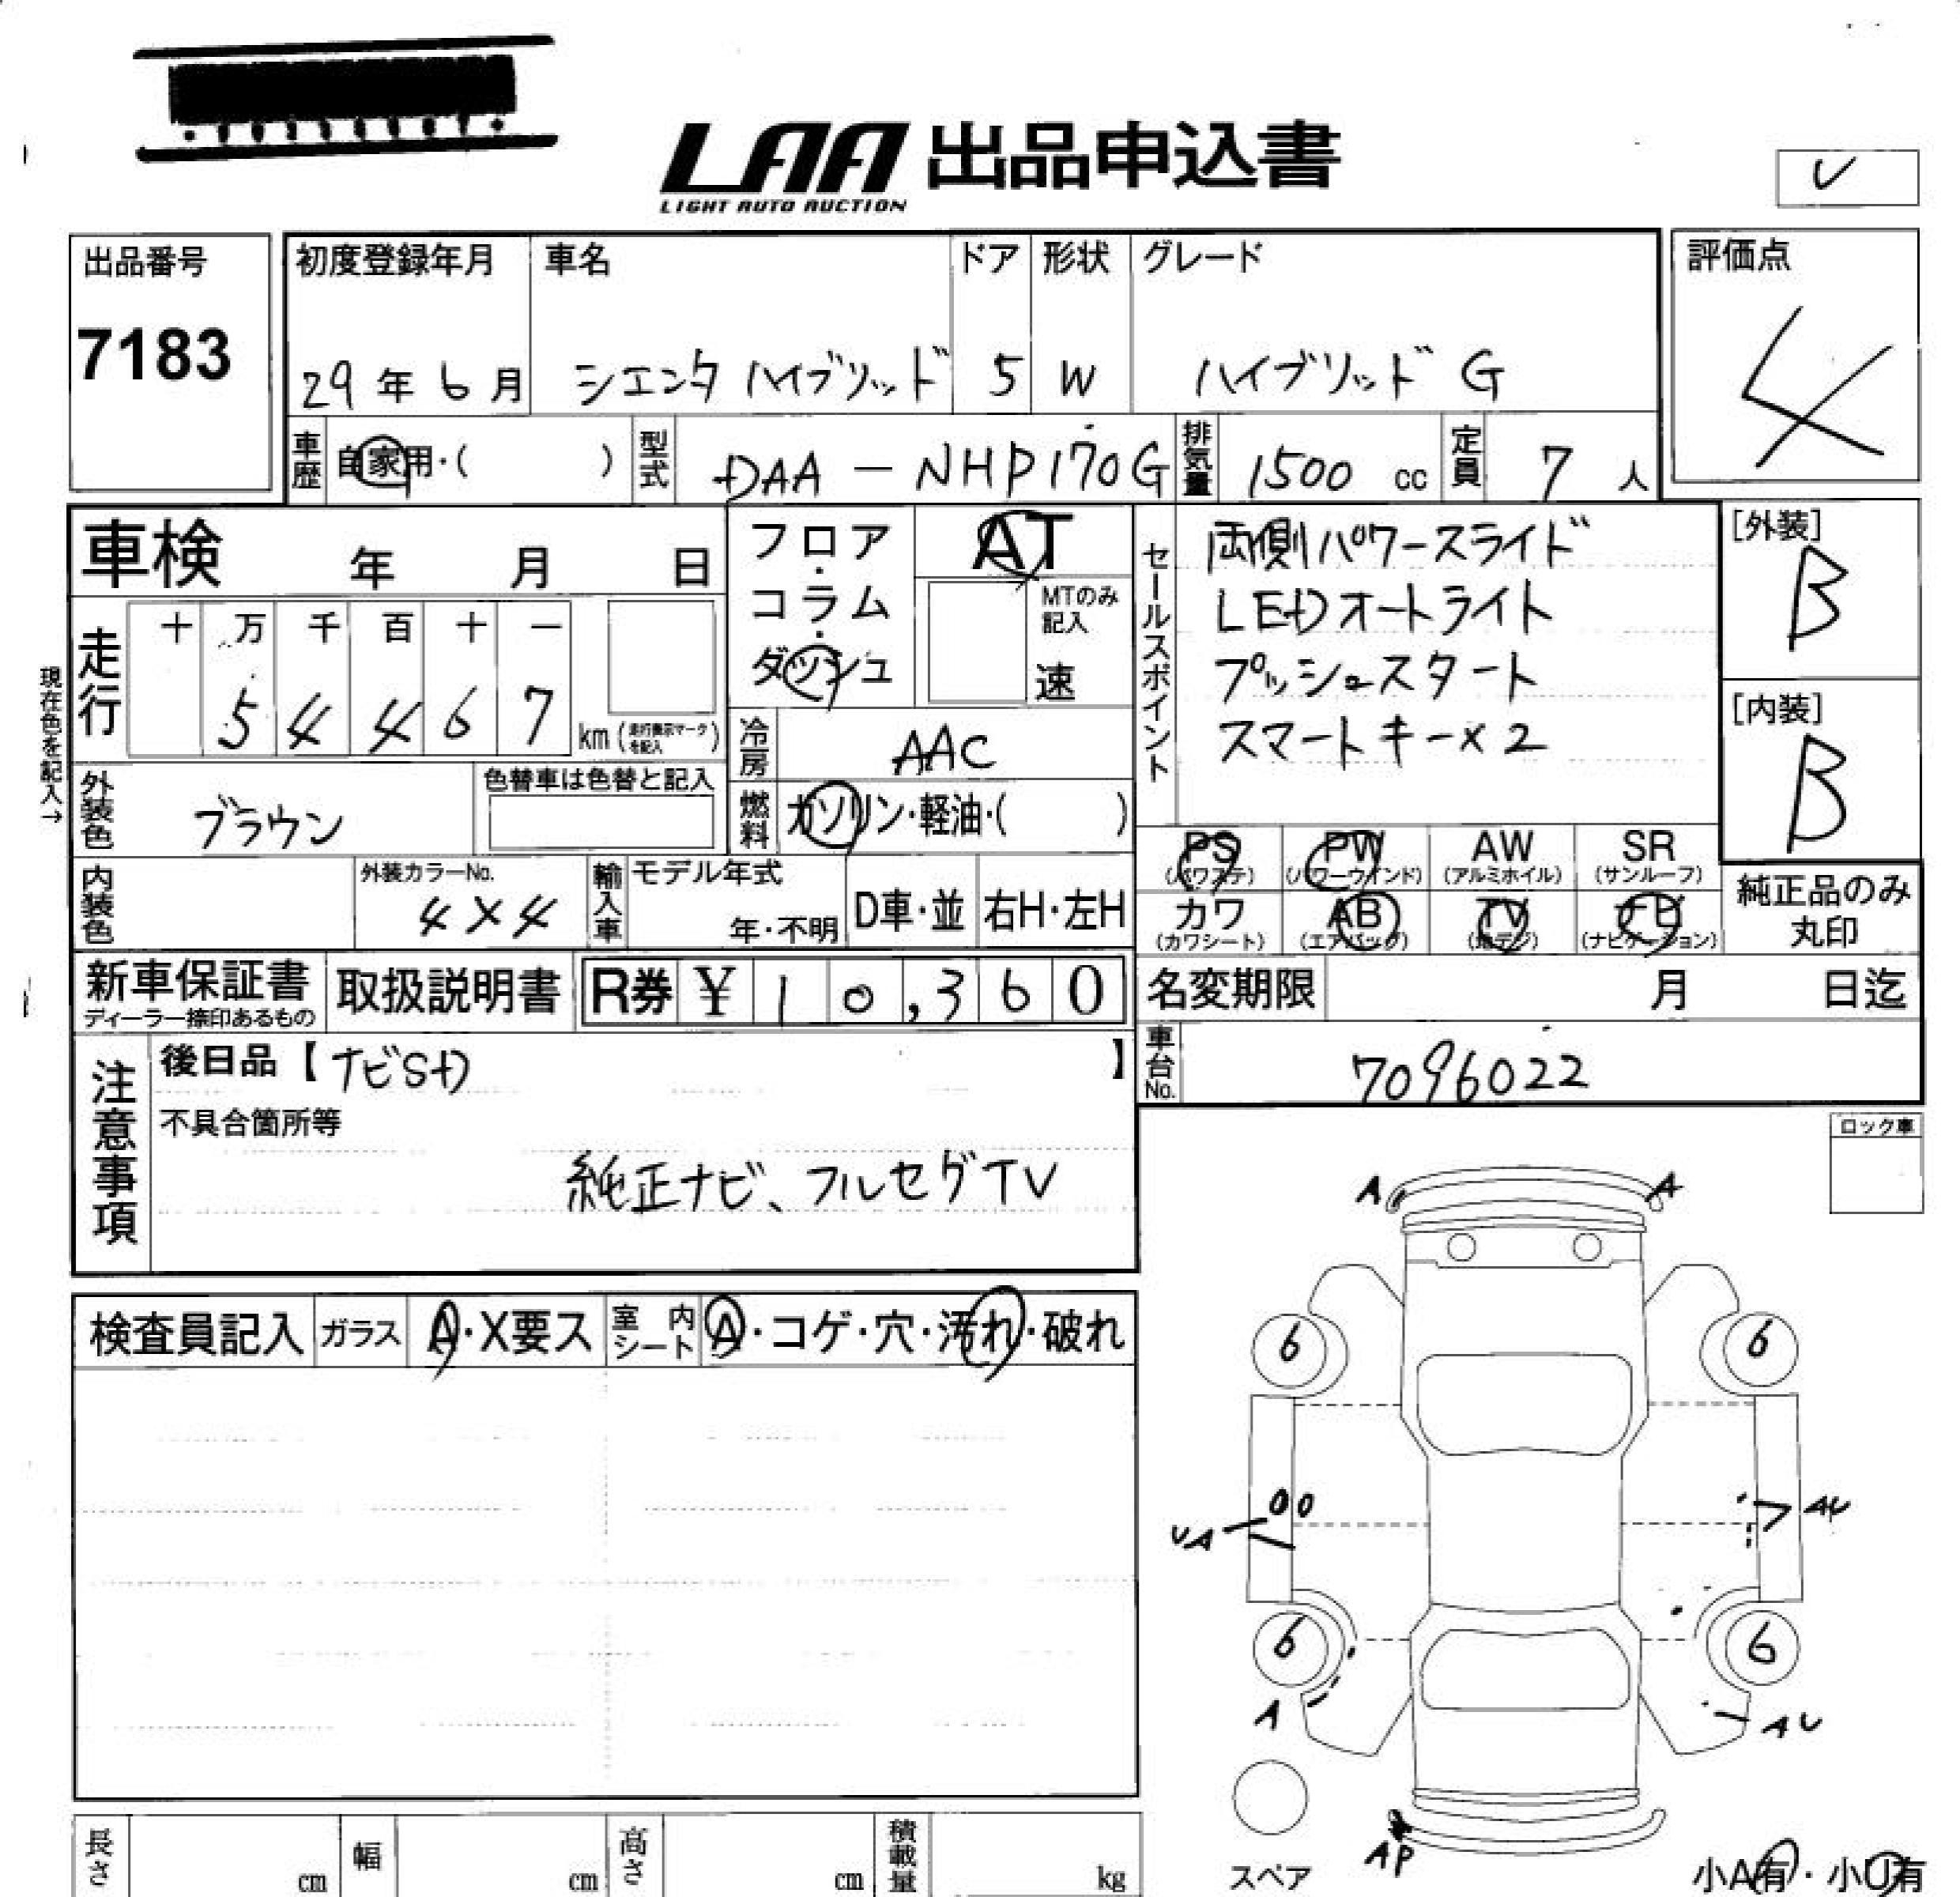 LAA 出品申込書
LIGHT AUTO AUCTION
レ
出品番号
7183
初度登録年月 車名 ドア 形状 グレード
29年6月 シエンタ ハイブリッド 5 W ハイブリッド G
評価点
4
車歴 自家用・( ) 型式 DAA-NHP170G 排気量 1500 cc 定員 7 人
車検 年 月 日
フロア・コラム・ダッシュ
AT
MTのみ記入
速
走行 十 万 千 百 十 一
5 4 4 6 7 km (走行表示マークを記入)
現在色を記入→
セールスポイント
両側パワースライド
LEDオートライト
プッシュスタート
スマートキー×2
[外装]
B
[内装]
B
冷房 AAC
外装色 ブラウン
色替車は色替と記入
燃料 ガソリン・軽油・( )
内装色
外装カラーNo.
4X4
輸入車 モデル年式
年・不明 D車・並 右H・左H
PS (パワステ) PW (パワーウインド) AW (アルミホイル) SR (サンルーフ)
カワ (カワシート) AB (エアバッグ) TV (地デジ) ナビ (ナビゲーション)
純正品のみ
丸印
新車保証書
ディーラー捺印あるもの
取扱説明書
R券 ¥ 10,360
名変期限 月 日迄
車台No. 7096022
注意事項
後日品【ナビSD】
不具合箇所等
純正ナビ、フルセグTV
ロック車
検査員記入 ガラス A・X要ス 室内シート A・コゲ・穴・汚れ・破れ
A A
6 6
UA AU
6 6
A AU
AP
スペア
小A有・小U有
長さ cm 幅 cm 高さ cm 積載量 kg